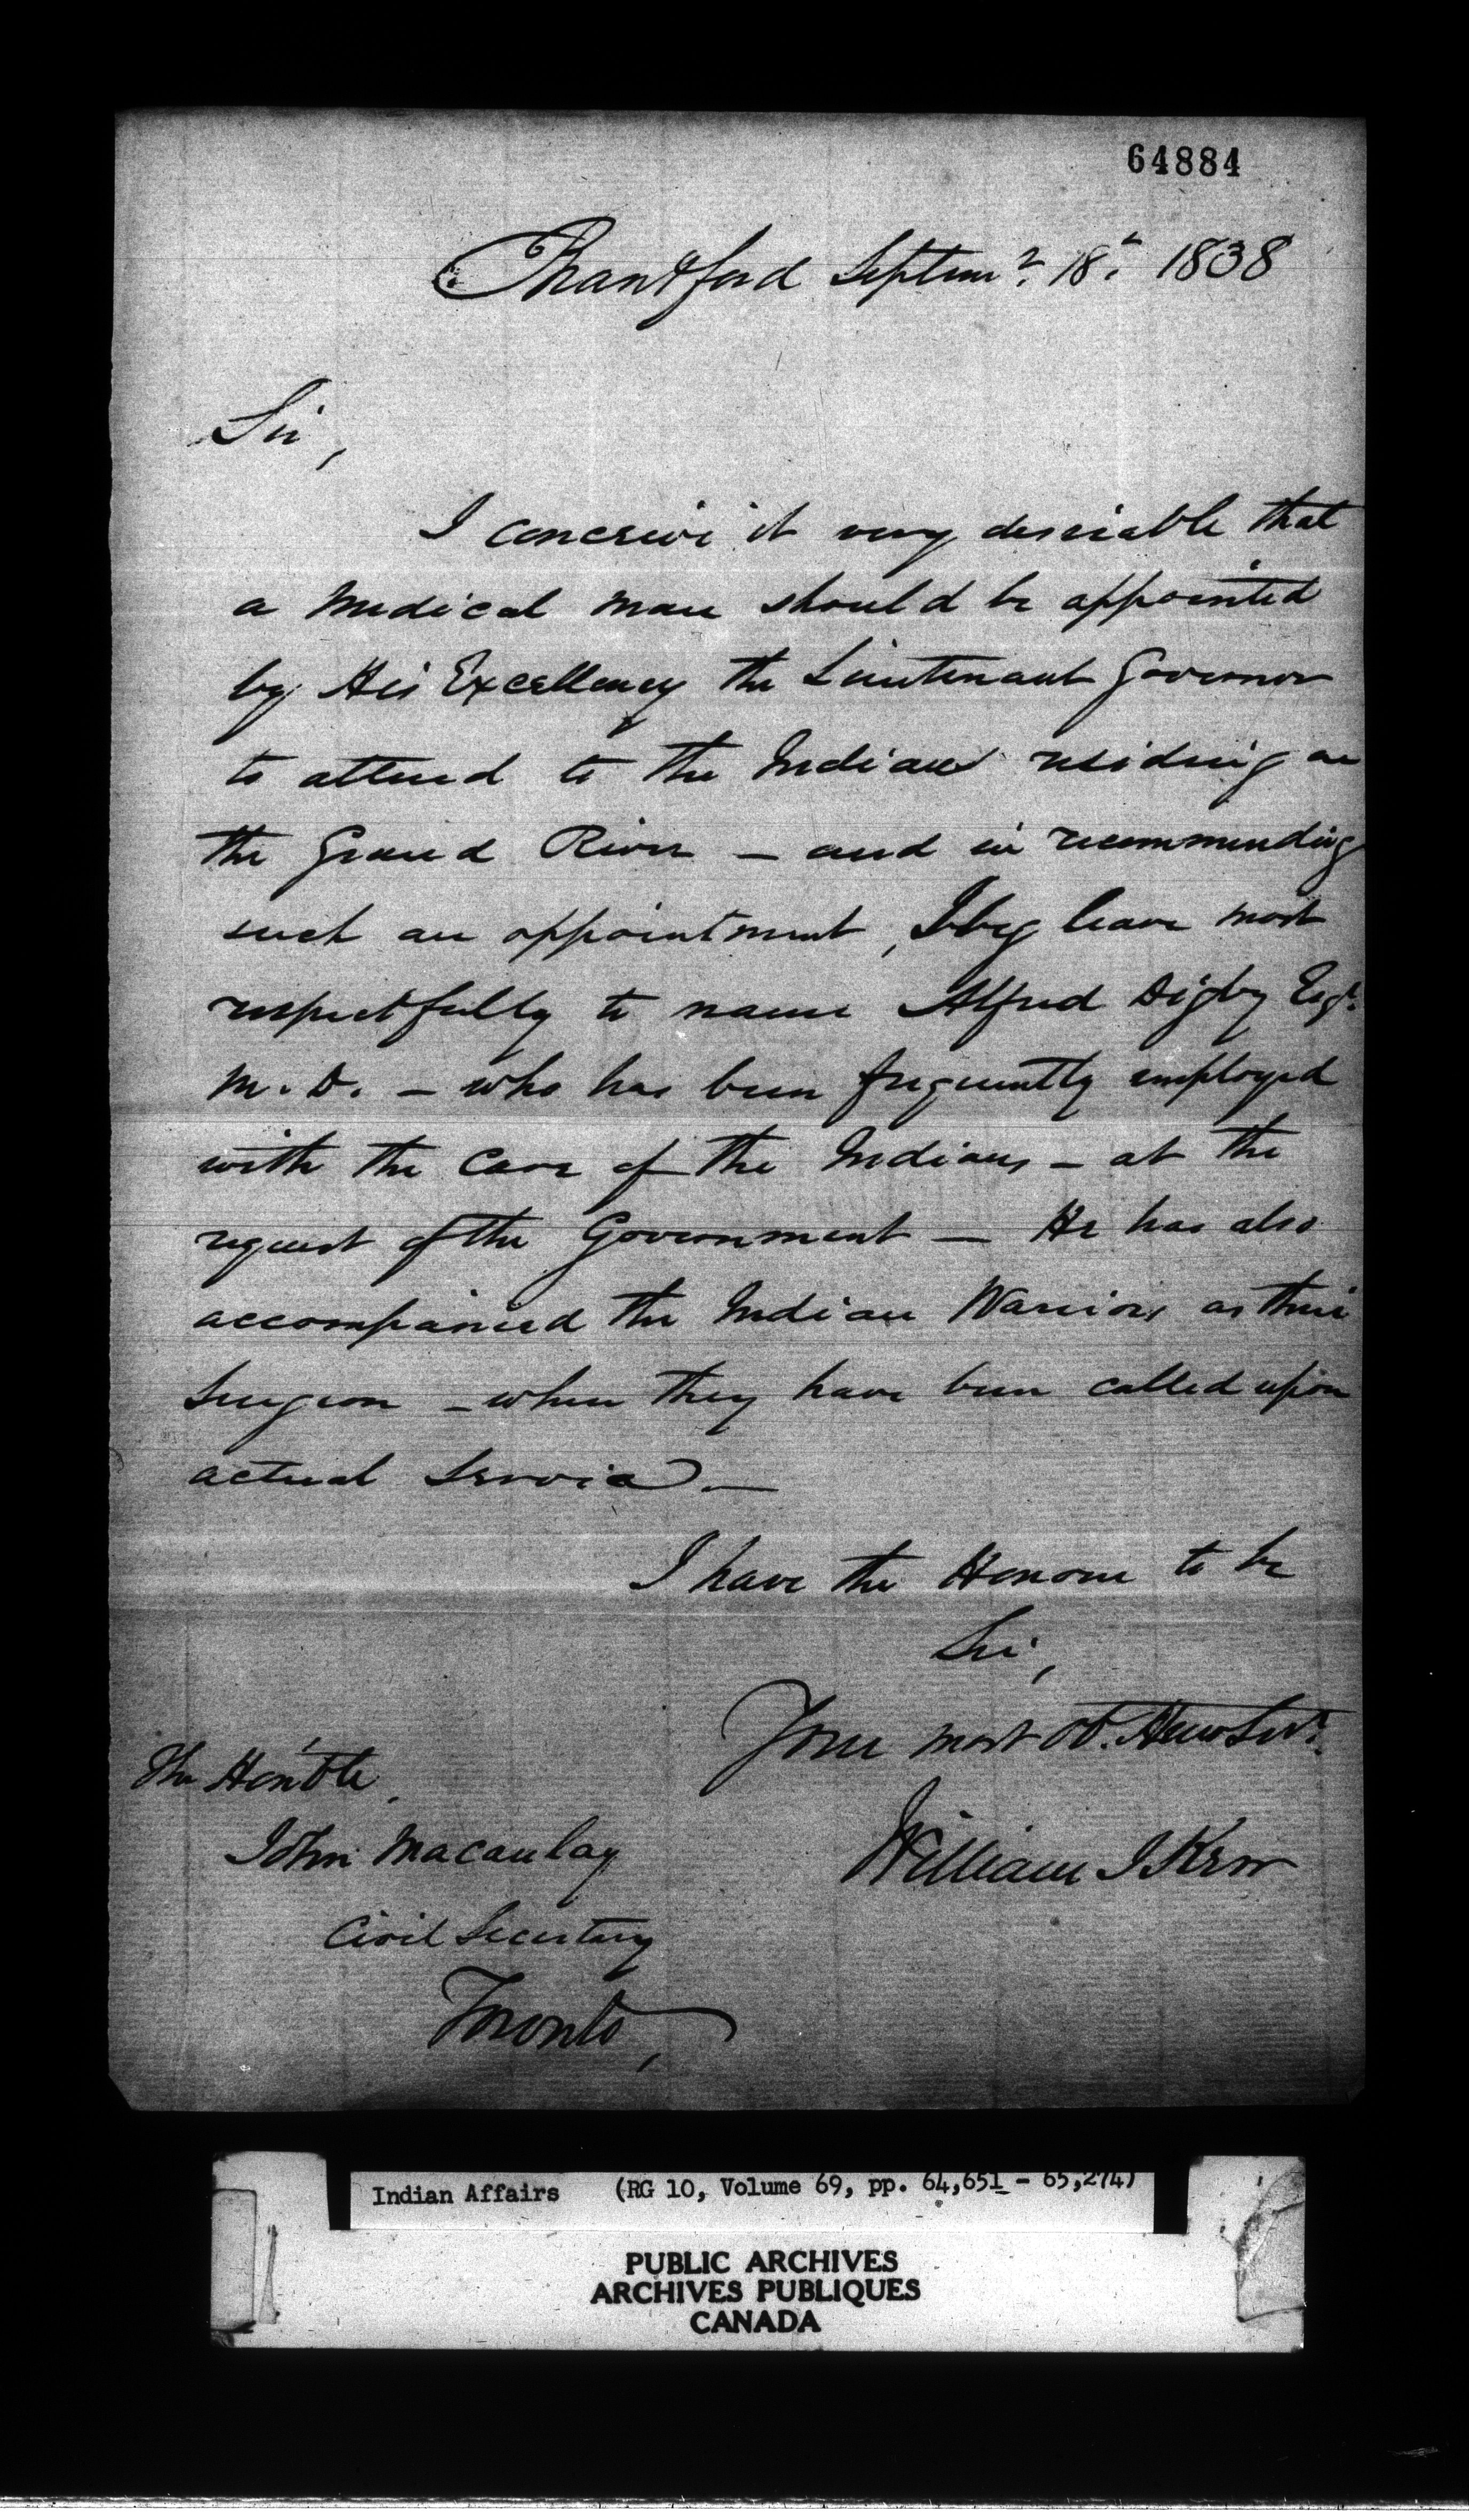 64884
Brantford Septemr. 18th. 1838
Sir,
I conceive it very desirable that
a Medical man should be appointed
by His Excellency the Lieutenant Governor
to attend to the Indians residing on
the Grand River — and in recommending
such an appointment, I beg leave most
respectfully to name Alfred Digby Esqr.
M.D. — who has been frequently employed
with the Care of the Indians — at the
request of the Government — He has also
accompanied the Indian Warriors as their
Surgeon — when they have been called upon
actual Service. —
I have the Honour to be
Sir,
Your most Ob. Hum Servt.
William J Kerr
The Honble
John Macaulay
Civil Secretary
Toronto,
Indian Affairs (RG 10, Volume 69, pp. 64,651 - 65,274)
PUBLIC ARCHIVES
ARCHIVES PUBLIQUES
CANADA